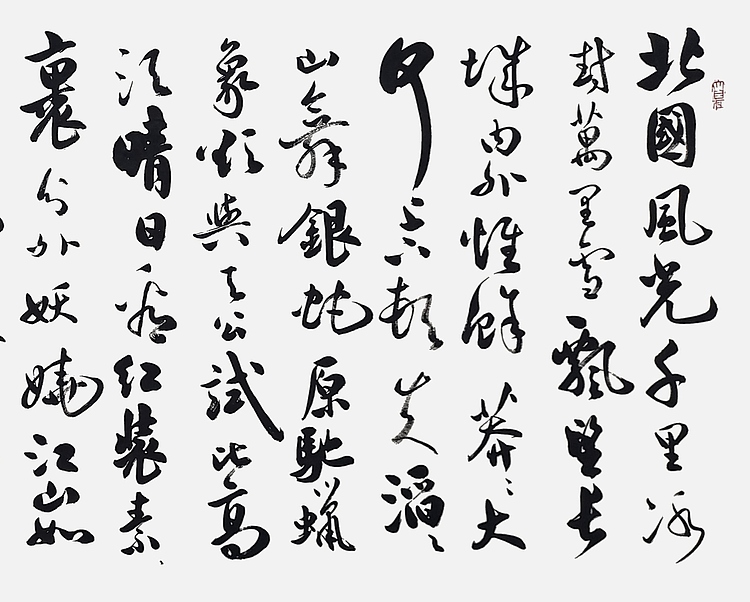 北國風光千里冰
封萬里雪飄望長
城內外惟餘莽〻大
河上下頓失滔〻
山舞銀蛇原馳蠟
象欲與天公試比高
須晴日看紅裝素
裹分外妖嬈江山如